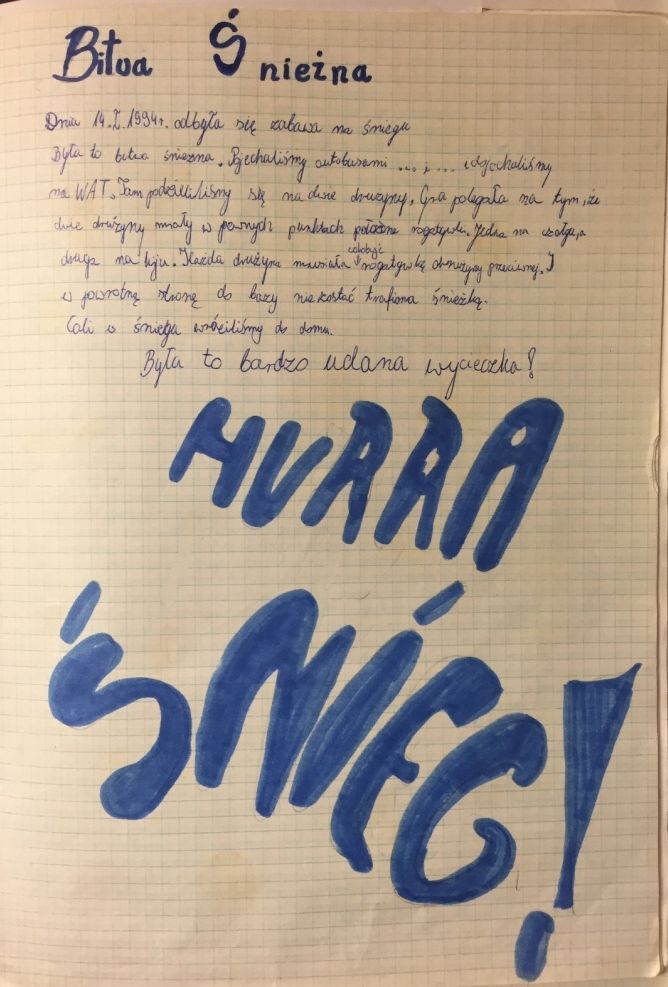 Bitwa Śnieżna
Dnia 14.I.1994r. odbyła się zabawa na śniegu
Była to bitwa śnieżna. Pojechaliśmy autobusami ... i ... i dojechaliśmy
na WAT. Tam podzieliliśmy się na dwie drużyny. Gra polegała na tym, że
dwie drużyny miały w pewnych punktach położone rogatywki. Jedna na czołgu, a
druga na kiju. Każda drużyna musiała zdobyć rogatywkę drużyny przeciwnej. I
w powrotną stronę do bazy nie zostać trafiona śnieżką.
Cali w śniegu wróciliśmy do domu.
Była to bardzo udana wycieczka!
HURRA
ŚNIEG!